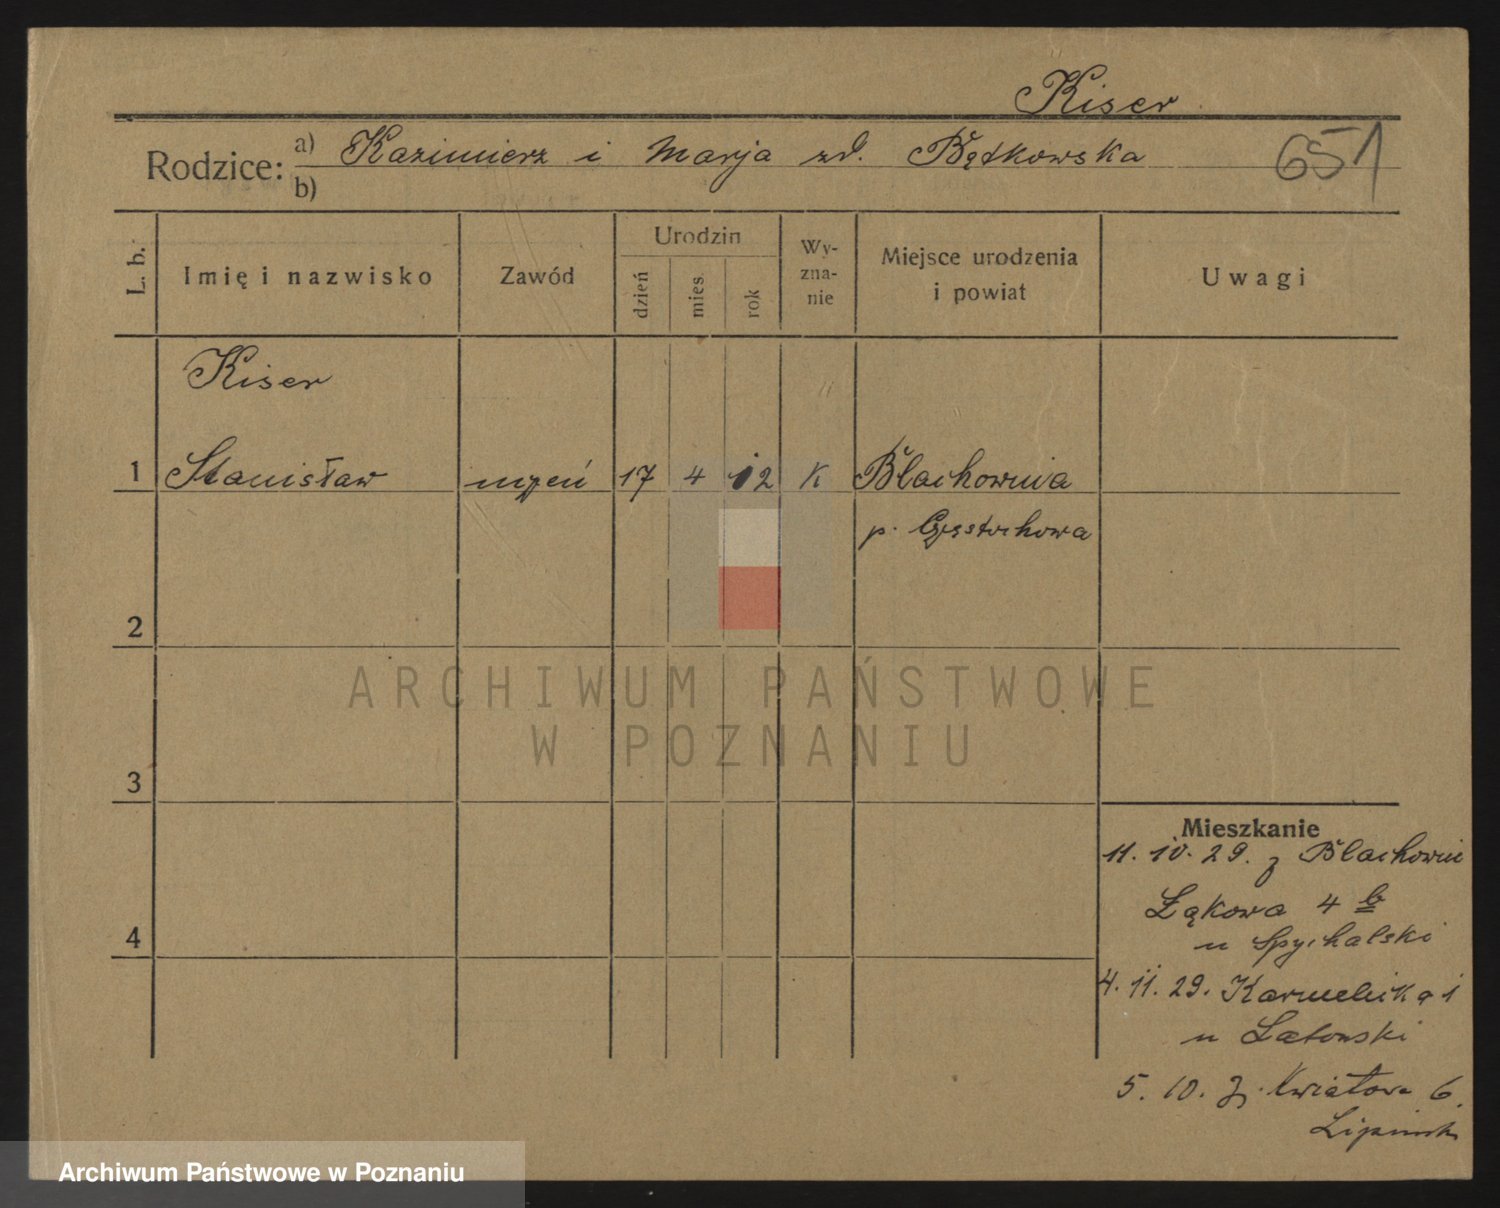 Kiser
Rodzice: a) Kazimierz i Marja zd. Bętkowska
b)
651
L. b.
Imię i nazwisko
Zawód
Urodzin
dzień
mies.
rok
Wy-
zna-
nie
Miejsce urodzenia
i powiat
Uwagi
Kiser
1 Stanisław uczeń 17 4 12 K Blachownia
p. Częstochowa
2
3
4
Mieszkanie
11. 10. 29. z Blachowni
Łąkowa 4 b
u Spychalski
4. 11. 29. Karmelicka 1
u
5. 10. Kwiatowa 6.
ARCHIWUM PAŃSTWOWE
W POZNANIU
Archiwum Państwowe w Poznaniu